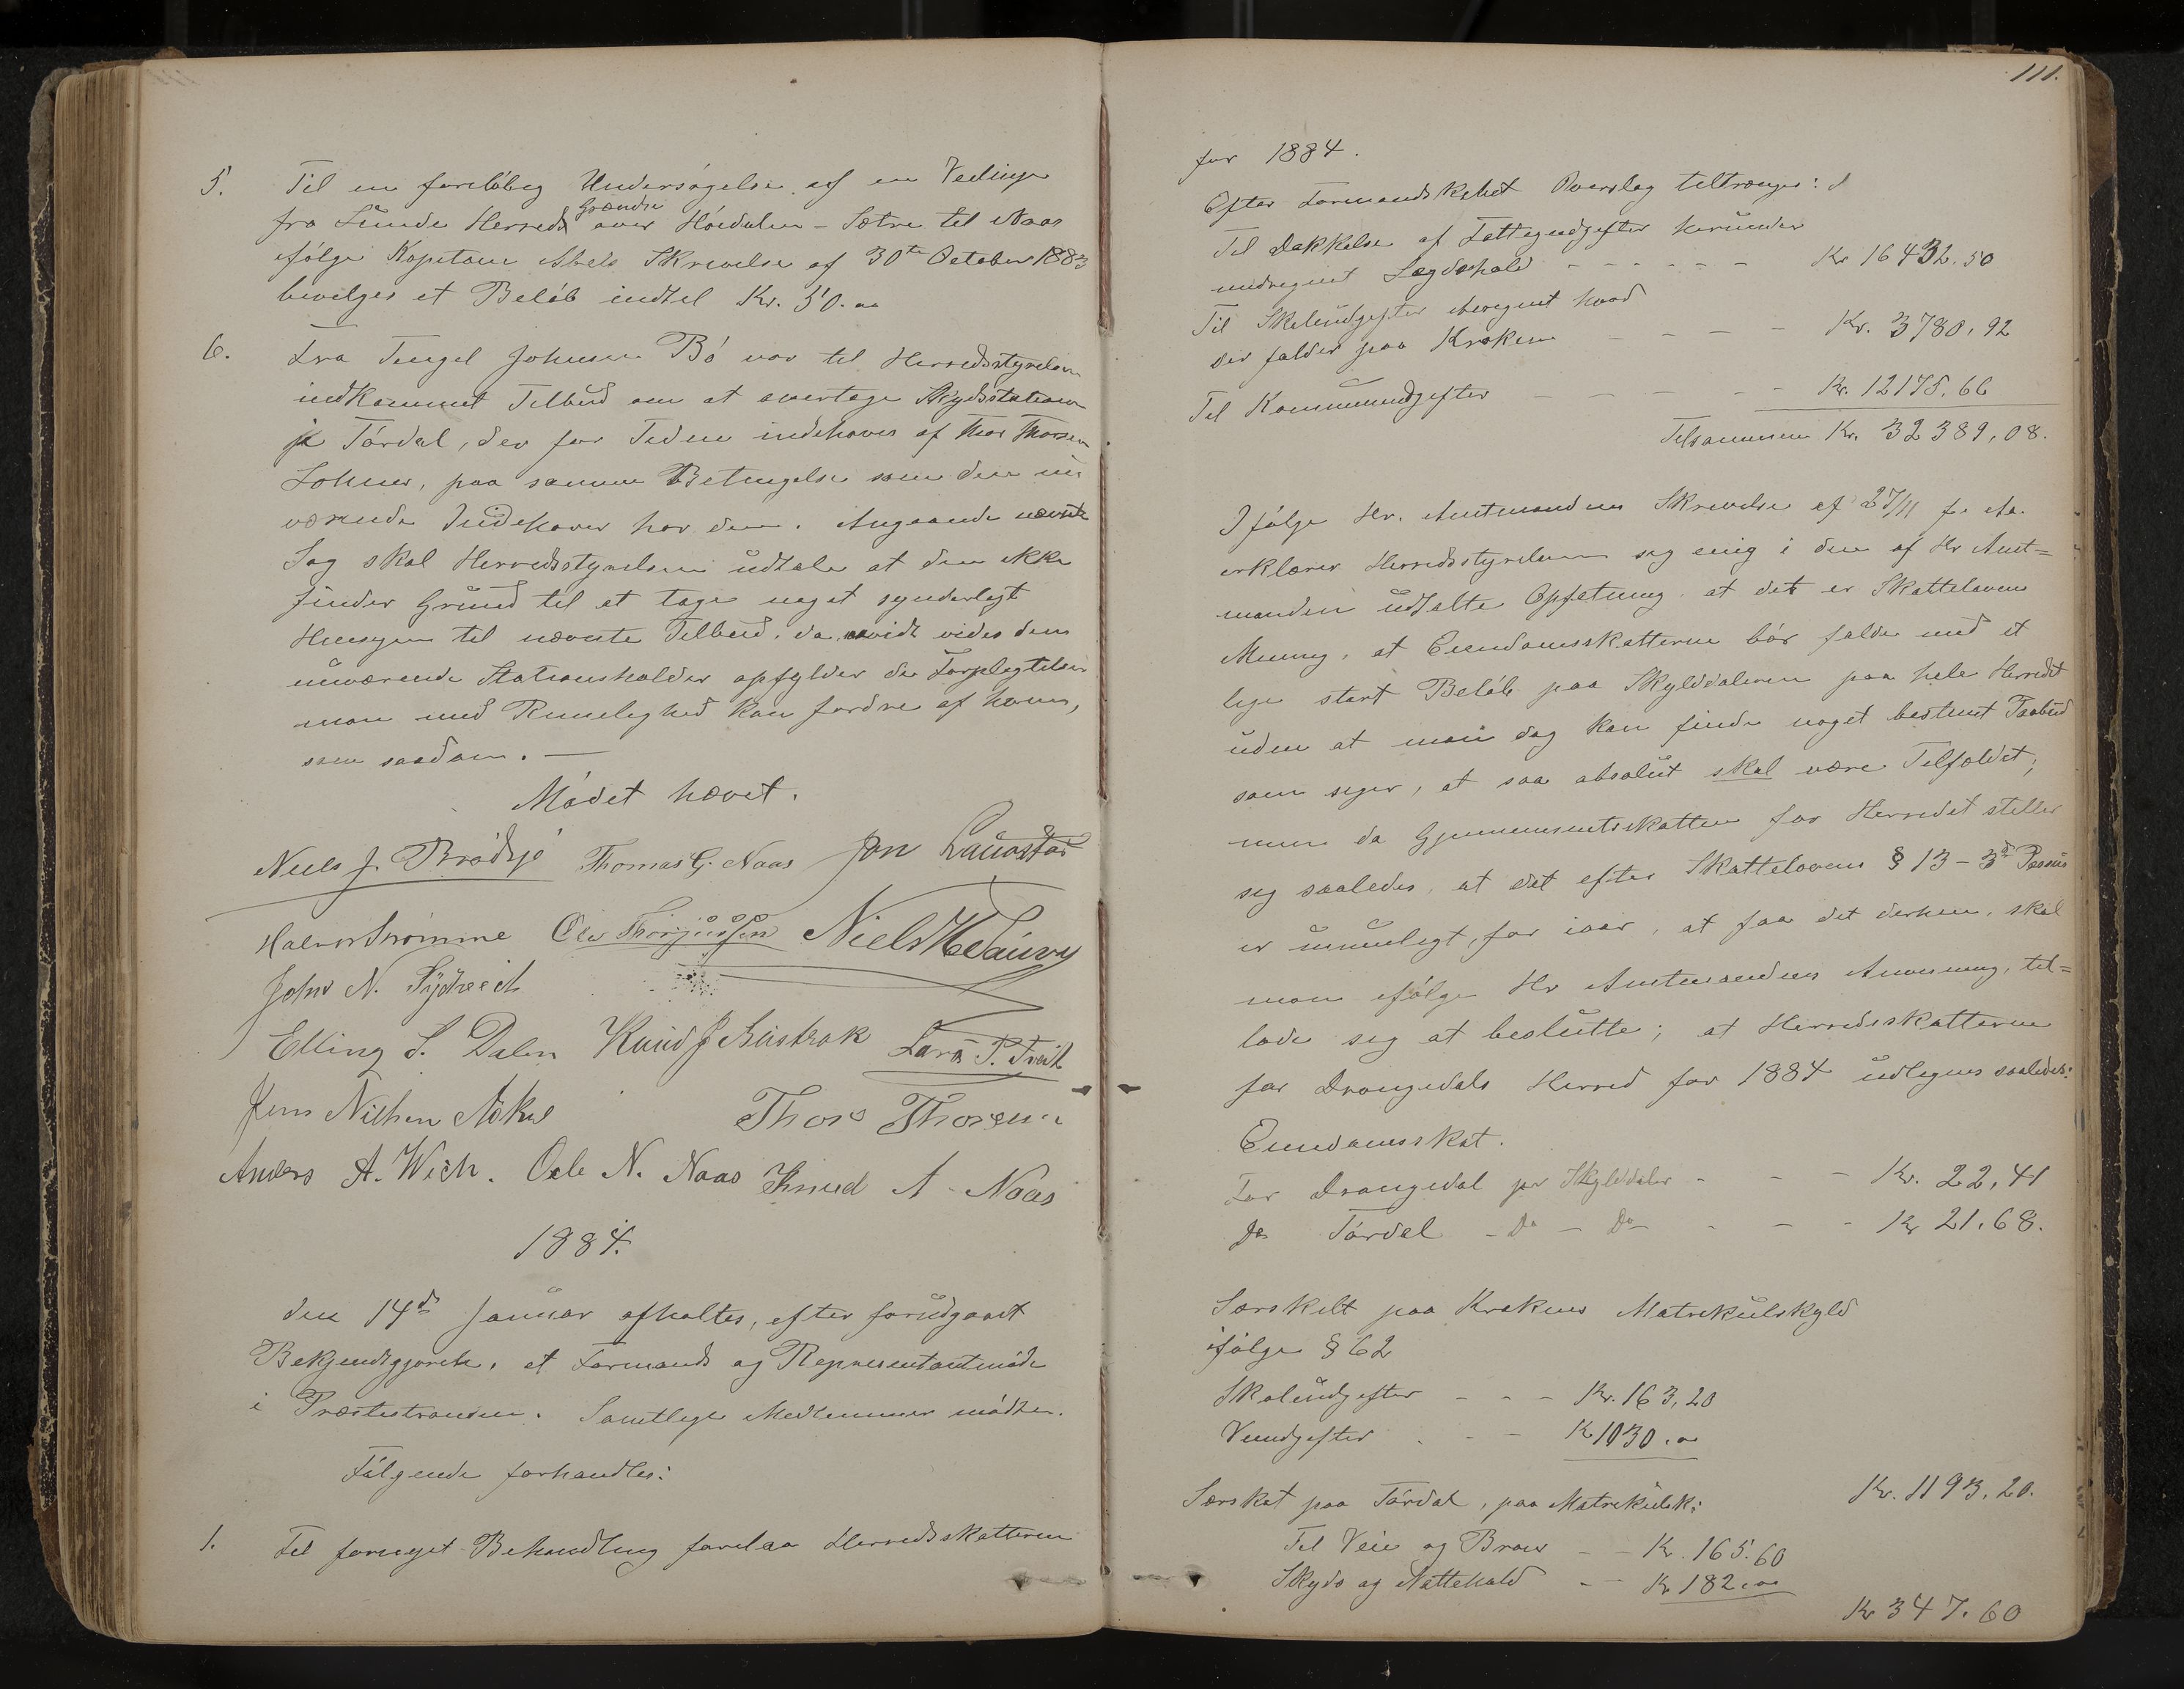 5. Til en foreløbig Undersøgelse af en Veilinge
fra Lunde Herreds Grændse over Høidalen - Sætre til Naas
ifølge Kapitain Abels Skrivelse af 30te October 1883
bevilges et Beløb indtil Kr. 50.00
6. Fra Tengel Johnsen Bø var til Herredsstyrelsen
indkommet Tilbud om at overtage Skydsstation
i Tørdal, der for Tiden indehaves af Thor Thorsen
, paa samme Betingelse som den nu
værende Indehaver har den. Angaaende nævnte
Sag skal Herredsstyrelsen udtale at den ikke
finder Grund til at tage noget synderligt
Hensyn til nævnte Tilbud, da saavidt vides den
nuværende Stationsholder opfylder de Forpligtelser
man med Rimelighed kan fordre af ham,
som saadan. —
Mødet hævet.
Niels J. Brødsjø Thomas G. Naas Jon Lauvstad
Halvor Strømme Ole Thorjussen Niels
John N.
Elling S. Dalen Knud J. Lars P. Tveit
Jens Nilsen Thor Thorsen
Anders A. Wich. Ole N. Naas Knud A. Naas
1884.
den 14de Januar afholtes, efter forudgaaet
Bekjendtgjørelse, et Formands og Representantmøde
i Præstestranden. Samtlige Medlemmer mødte.
Følgende forhandles:
1. Til fornyet Behandling forelaa Herredsskatterne
111.
for 1884.
Efter Formandskabet Overslag tiltrænges:
Til Dækkelse af Fattigudgifter herunder
indregnet Lægdshold - - - - - - Kr 16432.50
Til Skoleudgifter beregnet hvad
der falder paa Kroken - - - Kr. 3780,92
Til Kommuneudgifter - - - - Kr. 12175.66
Tilsammen Kr. 32389,08.
Ifølge Hr. Amtmandens Skrivelse af 27/11 f. Aa.
erklærer Herredsstyrelsen sig enig i den af Hr Amt=
manden udtalte Opfatning, at det er Skattelovens
Mening, at Eiendomsskatterne bør falde med et
lige stort Beløb paa Skylddaleren paa hele Herredet
uden at man dog kan finde noget bestemt Paabud
som siger, at saa absolut skal være Tilfældet;
men da Gjennemsnitsskatten for Herredet stiller
sig saaledes, at det efter Skattelovens § 13 - 3die Passus
er umuligt, for iaar, at faa det derhen, skal
man ifølge Hr Amtmandens Anvisning, til=
lade sig at beslutte; at Herredsskatterne
for Drangedals Herred for 1884 udlignes saaledes:
Eiendomsskat.
For Drangedal pr Skylddaler - - - Kr. 22,41
Do Tørdal - Do - Do - - - Kr 21.68.
Særskilt paa Krokens Matrikulskyld
ifølge § 62
Skoleudgifter - - - Kr. 163,20
Veiudgifter - - - Kr 1030.00
Kr. 1193.20.
Særskat paa Tørdal, paa Matrikulsk:
Til Veie og Broer - - Kr. 165.60
Skyds og Nattehold - - Kr 182.00
Kr 347.60